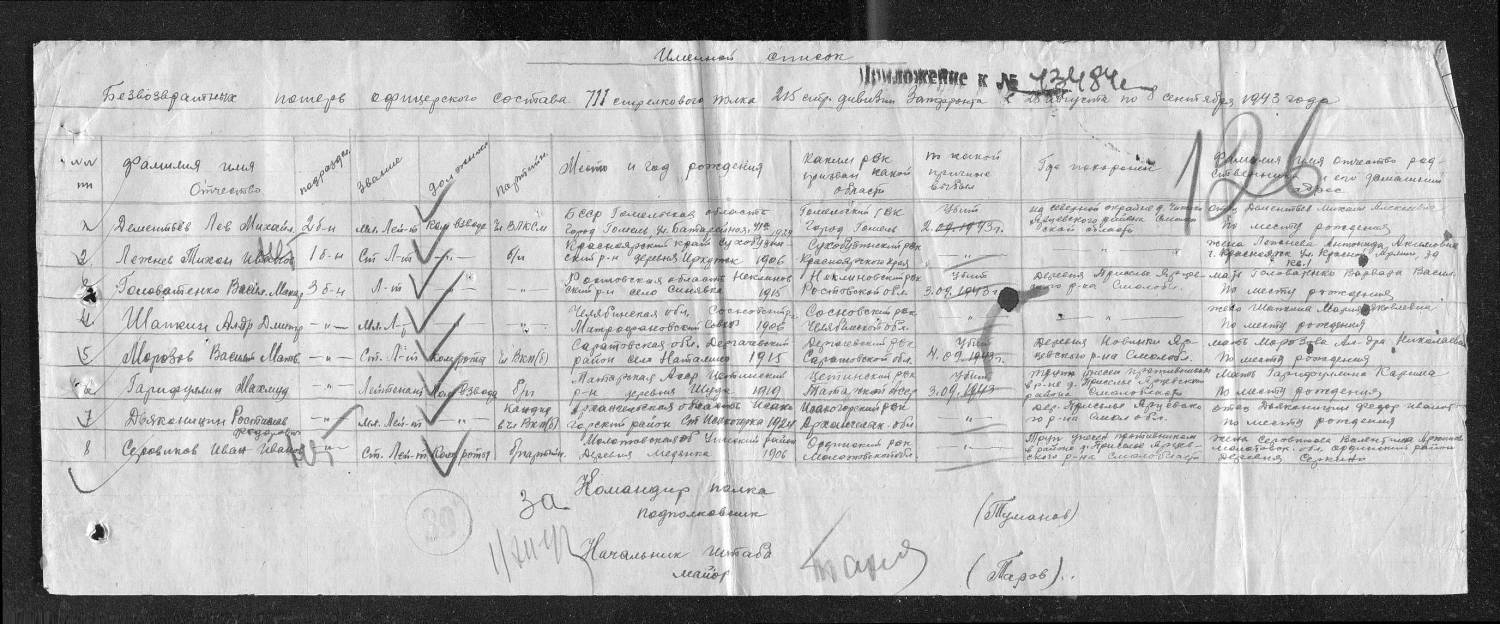 Именной список
Приложение к № 43484с
Безвозвратных потерь офицерского состава 711 стрелкового полка 215 стр. дивизии Запфронта с 28 августа по 8 сентября 1943 года
126
№№ пп Фамилия имя Отчество подраздел Звание должность партийн Место и год рождения Каким РВК призван какой области по какой причине выбыл Где похоронен Фамилия имя отчество родственника и его домашний адрес
1 Дементьев Лев Михайл. 2 б-н Мл. Лейт-т Ком Взвода чл ВЛКСМ БССР Гомельская область Город Гомель ул. Батарейная 1924 Гомельский ГВК Город Гомель Убит 2.09.1943г. на северной окраине д. отец Дементьев Михаил Алексеевич По месту рождения
2 Лежнев Тихон Иванов 1 б-н Ст Л-т -"- б/п Красноярский край Сухобузимский р-н деревня 1906 Сухобузимский рвк Красноярского края -"- -"- жена Лежнева Антонида Акимовна г. Красноярск ул. Красной Армии
Головатенко Васил. Макар 3 б-н Л-т -"- Ростовская область Неклиновский р-н село Синявка 1915 Неклиновский рвк Ростовской обл. Убит 3.09.1943г. Деревня Приселье мать Головатенко Варвара Васил. По месту рождения
4 Шапкин Алдр Дмитр -"- Мл. Л-т -"- Челябинская обл. Сосновский р. Митрофановский Совхоз 1906 Сосновский рвк Челябинской обл. -"- -"- жена Шапкина Мария Яковлевна По месту рождения
5 Морозов Василий Матв. -"- Ст. Л-т Ком роты чл ВКП(б) Саратовская обл. Дергачевский район село Наталино 1915 Дергачевский рвк Саратовской обл. Убит 4.09.1943г. Деревня Новинки Ярцевского р-на Смол обл. мать Морозова Ал-дра Николаевна По месту рождения
6 Гарифулин Махмуд Лейтенант Ком Взвода б/п Татарская р-н деревня Шуда 1919 Убит 3.09.1943 Труп унесен противником в р-не д. Приселье Ярцевского района Смоленской мать Гарифулина Карима По месту рождения
7 Дьяконицин Ростислав Федорович -"- Мл. Лей-т " Кандид в чл ВКП(б) Архангельская область Исакогорский район Ст Исакогорка 1924 Исакогорский рвк Архангельск. обл " Дер. Приселье Ярцевского р-на Смол обл. отец Дьяконицин Федор Иванов По месту рождения
8 Серовиков Иван Иванов -"- Ст. Лей-т Ком роты б/парт Молотовская об Уинский район Деревня Медянка 1906 Ординский рвк Молотовской обл. " Труп унесен противником в районе д. Приселье Ярцевского р-на Смол область жена Серовикова Валентина Молотовск. обл. Ординский район Деревня
За Командир полка
подполковник (Туманов)
39
Начальник штаба
майор (Таров)